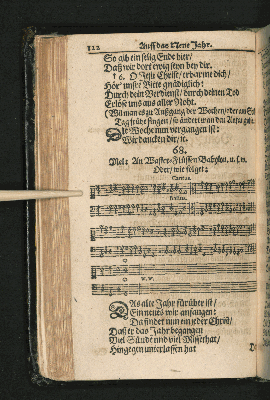 112 Auff das Neue Jahr.
So gib ein selig Ende hier/
Daß wir dort ewig seyn bey dir.
16. O Jesu Christ/ erbarme dich/
Hör' unsre Bitte gnädiglich:
Durch dein Verdienst/ durch deinen Tod
Erlöse uns aus aller Noht.
(Wil man es zu Außgang der Wochen/ oder am
Tag frühe singen/ so ändert man den
Die Woche nun vergangen ist:
Wir dancken dir/ ic.
68.
Mel: An Wasser-Flüssen Babylon, u. s. w.
Oder/ wie folget:
Cantus.
Bassus.
Das alte Jahr fürüber ist/
Ein neues wir anfangen:
Da findet nun ein jeder Christ/
Daß er das Jahr begangen
Viel Sünde und viel Missethat/
Hingegen unterlassen hat